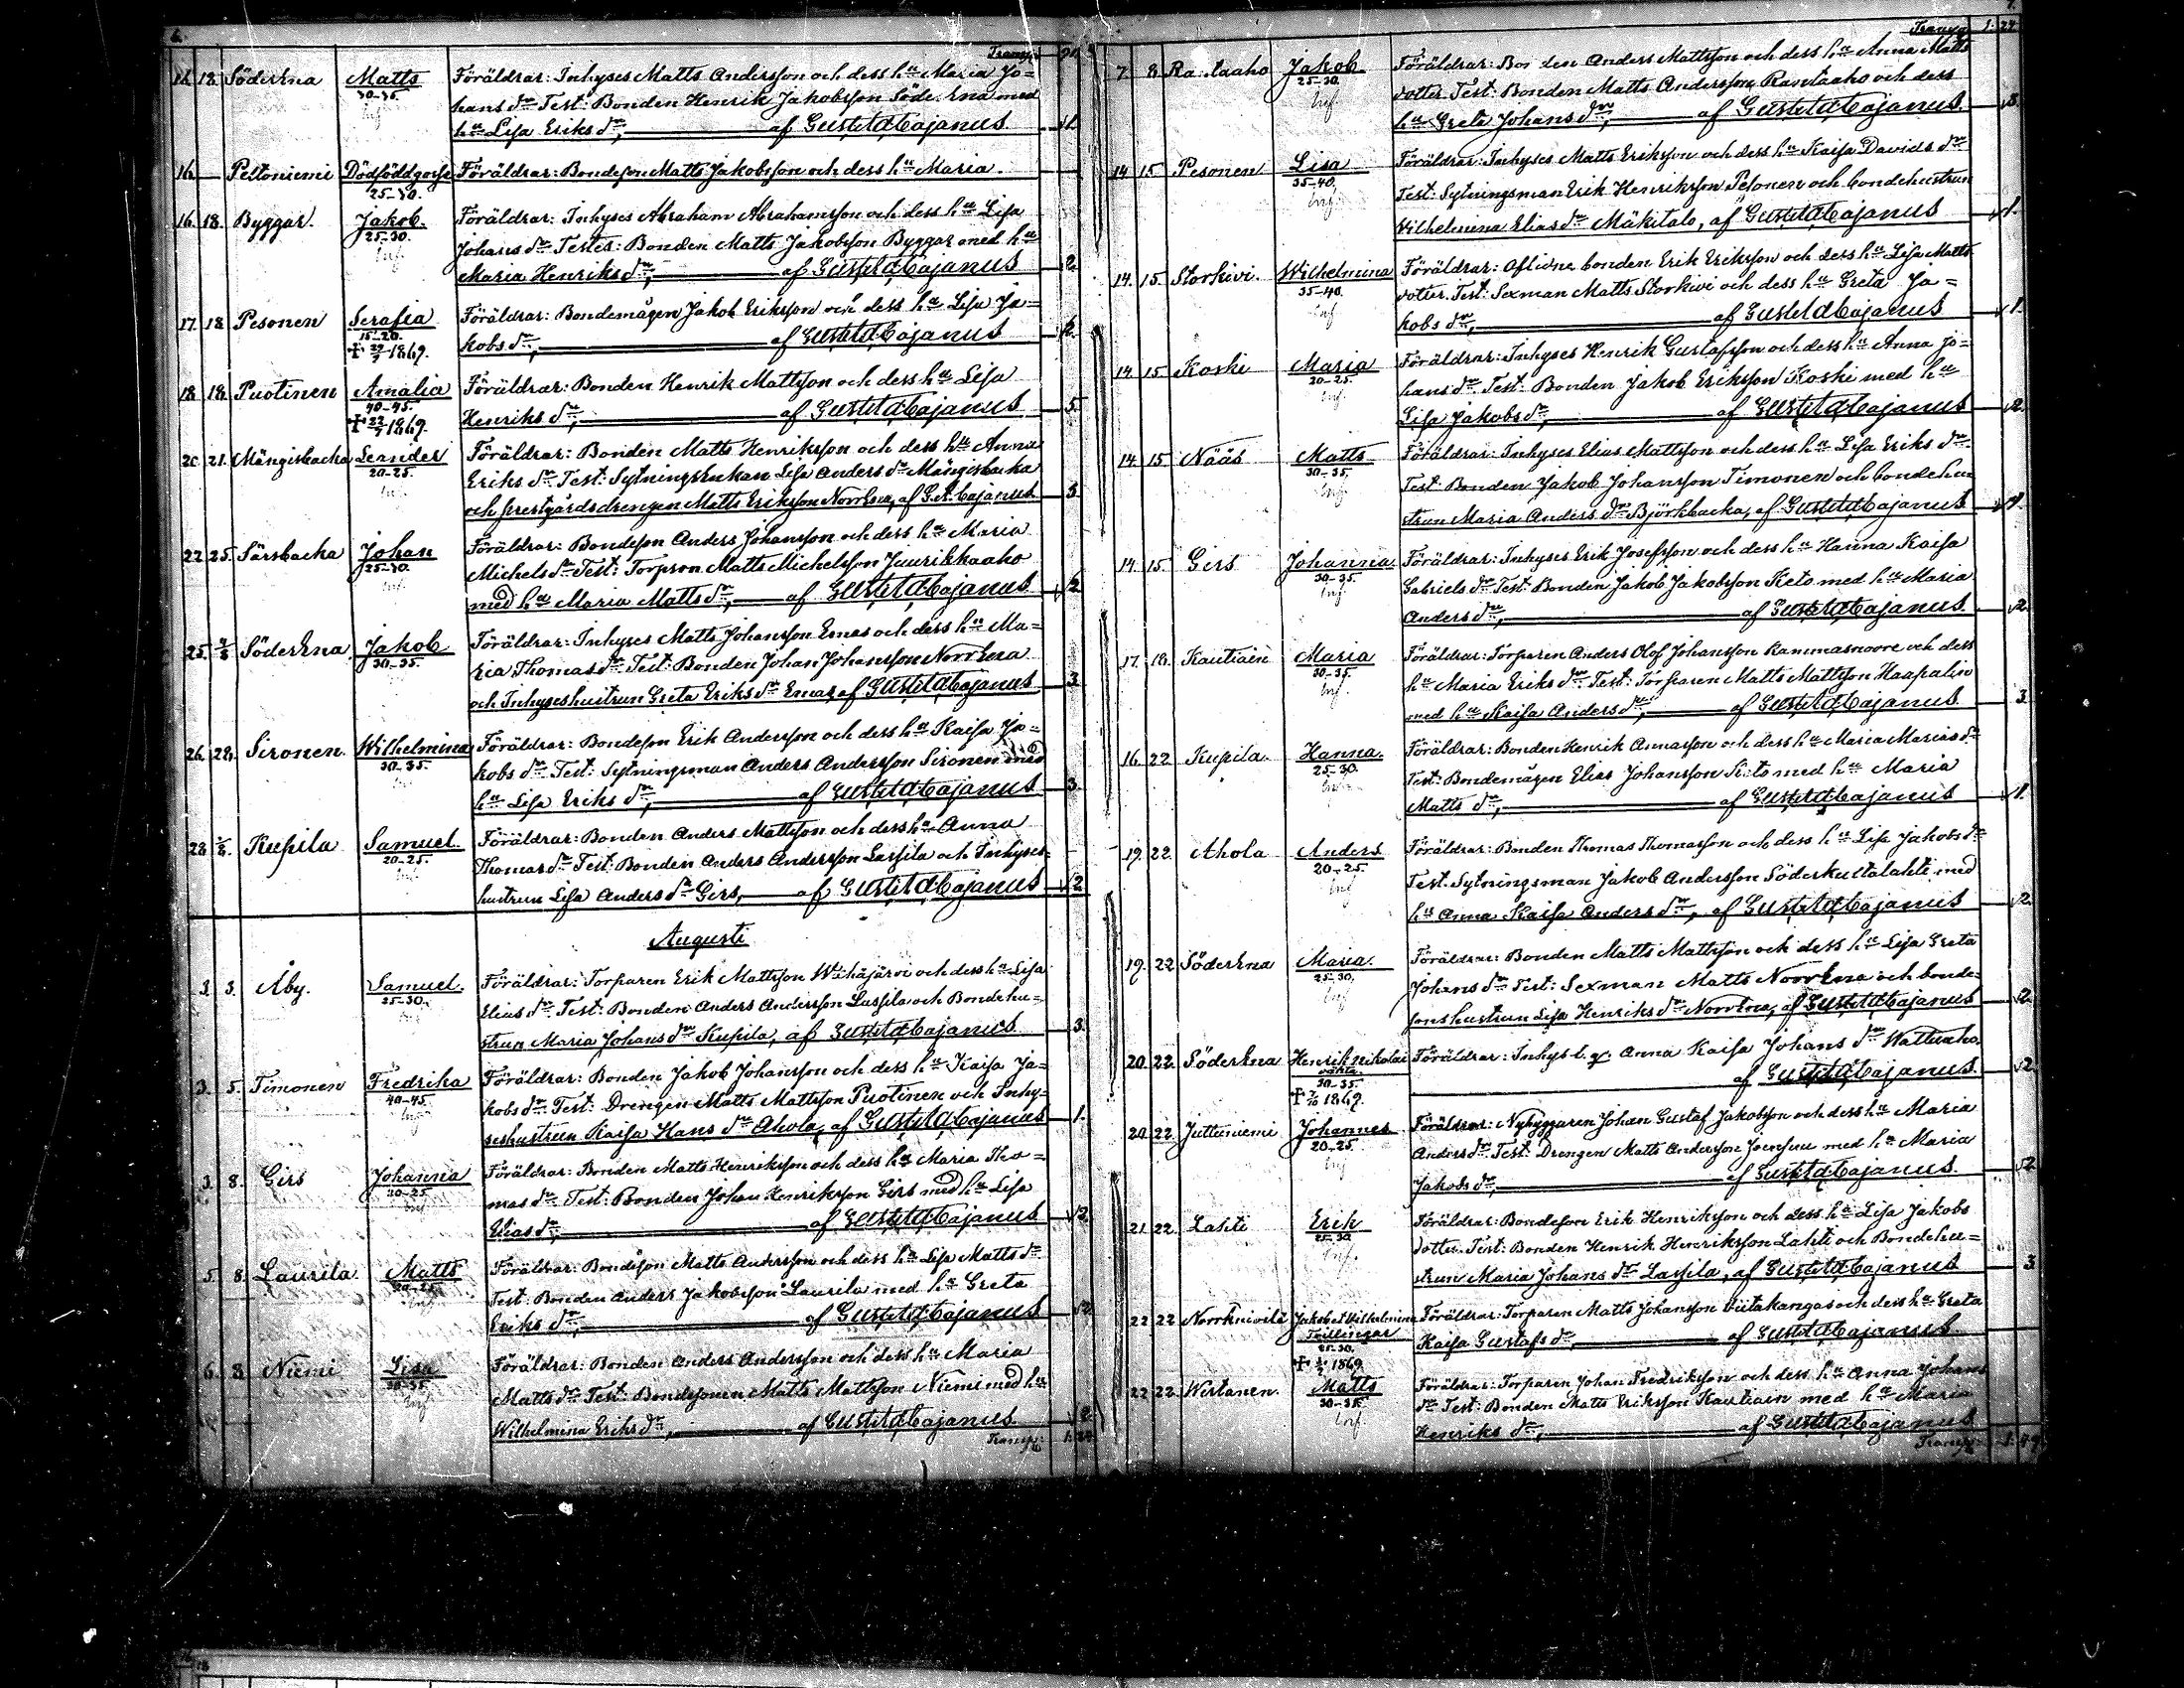 6.
Transp:
16. 18. Söderena Matts Föräldrar: Inhyses Matts Andersson och dess hu Maria Jo=
30-35. hans dr. Test: Bonden Henrik Jakobsson Söderena med
Inf. hu Lisa Eriks dr, af Gust. Ad. Cajanus 1.
16. — Peltoniemi Dödföddgosse Föräldrar: Bondeson Matts Jakobsson och dess hu Maria.
25-30.
16. 18. Byggar. Jakob. Föräldrar: Inhyses Abraham Abrahamsson och dess hu Lisa
25-30. Johans dr. Testes: Bonden Matts Jakobsson Byggar med hu
Inf. Maria Henriks dr, af Gust. Ad. Cajanus 2
17. 18. Pesonen Serafia Föräldrar: Bondemågen Jakob Eriksson och dess hu Lisa Ja=
15-20. kobs dr, af Gust. Ad. Cajanus 2.
† 29/7 1869.
18. 18. Puotinen Amalia Föräldrar: Bonden Henrik Mattsson och dess hu Lisa
40-45. Henriks dr, af Gust. Ad. Cajanus 5.
† 22/7 1869.
20. 21. Mängisbacka Leander Föräldrar: Bonden Matts Henriksson och dess hu Anna
20-25. Eriks dr. Test: Sytningsenkan Lisa Anders dr Mängisbacka
Inf. och prestgårdsdrengen Matts Eriksson Norrena, af G. A. Cajanus 3
22. 25. Särsbacka Johan Föräldrar: Bondeson Anders Johansson och dess hu Maria
25-30. Michels dr. Test: Torpson Matts Michelsson Juurikkaaho
Inf. med hu Maria Matts dr, af Gust. Ad. Cajanus 2
25. 1/8 Söderena Jakob Föräldrar: Inhyses Matts Johansson Emas och dess hu Ma=
30-35. ria Thomas dr. Test: Bonden Johan Johansson Norrena
och Inhyseshustrun Greta Eriks dr Emas, af Gust. Ad. Cajanus 3
26. 28. Sironen. Wilhelmina Föräldrar: Bondeson Erik Andersson och dess hu Kaisa Ja=
30-35. kobs dr. Test: Sytningsman Anders Andersson Sironen med
hu Lisa Eriks dr, af Gust. Ad. Cajanus 3.
28. 1/8. Kupila Samuel. Föräldrar: Bonden Anders Mattsson och dess hu Anna
20-25. Thomas dr. Test: Bonden Anders Andersson Lassila och Inhyses=
Inf. hustrun Lisa Anders dr Girs, af Gust. Ad. Cajanus 2
Augusti
3. 3. Åby. Samuel. Föräldrar: Torparen Erik Mattsson Wähäjärvi och dess hu Lisa
25-30. Elias dr. Test: Bonden Anders Andersson Lassila och Bondehu=
strun Maria Johans dr Kupila, af Gust. Ad. Cajanus 3.
3. 5. Timonen Fredrika Föräldrar: Bonden Jakob Johansson och dess hu Kaisa Ja=
40-45. kobs dr. Test: Drengen Matts Mattsson Puotinen och Inhy=
Inf. seshustrun Kaisa Hans dr Ahola, af Gust. Ad. Cajanus 1.
3. 8. Girs Johanna Föräldrar: Bonden Matts Henriksson och dess hu Maria Tho=
20-25. mas dr. Test: Bonden Johan Henriksson Girs med hu Lisa
Inf. Elias dr, af Gust. Ad. Cajanus 2
5. 8. Laurila. Matts Föräldrar: Bondeson Matts Andersson och dess hu Lisa Matts dr
20-25. Test: Bonden Anders Jakobsson Laurila med hu Greta
Eriks dr, af Gust. Ad. Cajanus 2.
6. 8. Niemi Lisa Föräldrar: Bonden Anders Andersson och dess hu Maria
30-35. Matts dr. Test: Bondesonen Matts Mattsson Niemi med hu
Inf. Wilhelmina Eriks dr, af Gust. Ad. Cajanus 2.
Transp:
7.
Transp: 1. 24
7. 8. Jakob Föräldrar: Bonden Anders Mattsson och dess hu Anna Matts
25-30. dotter. Test: Bonden Matts Andersson Rantaaho och dess
Inf. hu Greta Johans dr, af Gust. Ad. Cajanus 3.
14 15 Pesonen Lisa Föräldrar: Inhyses Matts Eriksson och dess hu Kaisa Davids dr
35-40. Test: Sytningsman Erik Henriksson Pesonen och bondehustrun
Inf. Wilhelmina Elias dr Mäkitalo, af Gust. Ad. Cajanus 1.
14. 15. Storkivi. Wilhelmina Föräldrar: Aflidne bonden Erik Eriksson och dess hu Lisa Matts
35-40. dotter. Test: Sexman Matts Storkivi och dess hu Greta Ja=
Inf. kobs dr, af Gust. Ad. Cajanus 1.
14 15 Koski Maria Föräldrar: Inhyses Henrik Gustafsson och dess hu Anna Jo=
20-25. hans dr. Test: Bonden Jakob Eriksson Koski med hu
Inf. Lisa Jakobs dr, af Gust. Ad. Cajanus 2.
14 15 Nääs Matts Föräldrar: Inhyses Elias Mattsson och dess hu Lisa Eriks dr
30-35. Test: Bonden Jakob Johansson Timonen och bondehu=
Inf. strun Maria Anders dr Björkbacka, af Gust. Ad. Cajanus 1.
14. 15. Girs Johanna Föräldrar: Inhyses Erik Josefsson och dess hu Hanna Kaisa
30-35. Gabriels dr. Test: Bonden Jakob Jakobsson Keto med hu Maria
Inf. Anders dr, af Gust. Ad. Cajanus 2.
17. 18. Kautiain Maria Föräldrar: Torparen Anders Olof Johansson Kammasnoore och dess
30-35. hu Maria Eriks dr. Test: Torparen Matts Mattsson Haapalin
Inf. med hu Kaisa Anders dr, af Gust. Ad. Cajanus 3
16. 22 Kupila. Hanna. Föräldrar: Bonden Henrik Annasson och dess hu Maria Marias dr
25-30. Test: Bondemågen Elias Johansson Keto med hu Maria
Matts dr, af Gust. Ad. Cajanus 1.
19. 22 Ahola Anders Föräldrar: Bonden Thomas Thomasson och dess hu Lisa Jakobs dr
20-25. Test: Sytningsman Jakob Andersson Söderkultalahti med
Inf. hu Anna Kaisa Anders dr, af Gust. Ad. Cajanus 2.
19. 22 Söderena Maria. Föräldrar: Bonden Matts Mattsson och dess hu Lisa Greta
25-30. Johans dr. Test: Sexman Matts Norrena och bonde=
Inf. sonshustrun Lisa Henriks dr Norrena, af Gust. Ad. Cajanus 2.
20. 22. Söderena Henrik Nikolai Föräldrar: Inhys. l. qp. Anna Kaisa Johans dr Wattuaho.
oäkta. af Gust. Ad. Cajanus. 2.
30-35.
† 7/10 1869.
20 22. Juttuniemi Johannes Föräldrar: Nybyggaren Johan Gustaf Jakobsson och dess hu Maria
20-25. Anders dr. Test: Drengen Matts Andersson Joensuu med hu Maria
Inf. Jakobs dr, af Gust. Ad. Cajanus. 2
21. 22. Lahti Erik Föräldrar: Bondeson Erik Henriksson och dess hu Lisa Jakobs
25-30 dotter. Test: Bonden Henrik Henriksson Lahti och Bondehu=
Inf. strun Maria Johans dr Lassila, af Gust. Ad. Cajanus 3
22 22. Norrkniivilä Jakob o Wilhelmina Föräldrar: Torparen Matts Johansson Viitakangas och dess hu Greta
Tvillingar Kaisa Gustafs dr, af Gust. Ad. Cajanus.
25-30.
22 22. Wirtanen. Matts Föräldrar: Torparen Johan Fredriksson och dess hu Anna Johans
30-35. dr. Test: Bonden Matts Eriksson Kautiain med hu Maria
Inf. Henriks dr, af Gust. Ad. Cajanus
Transp: